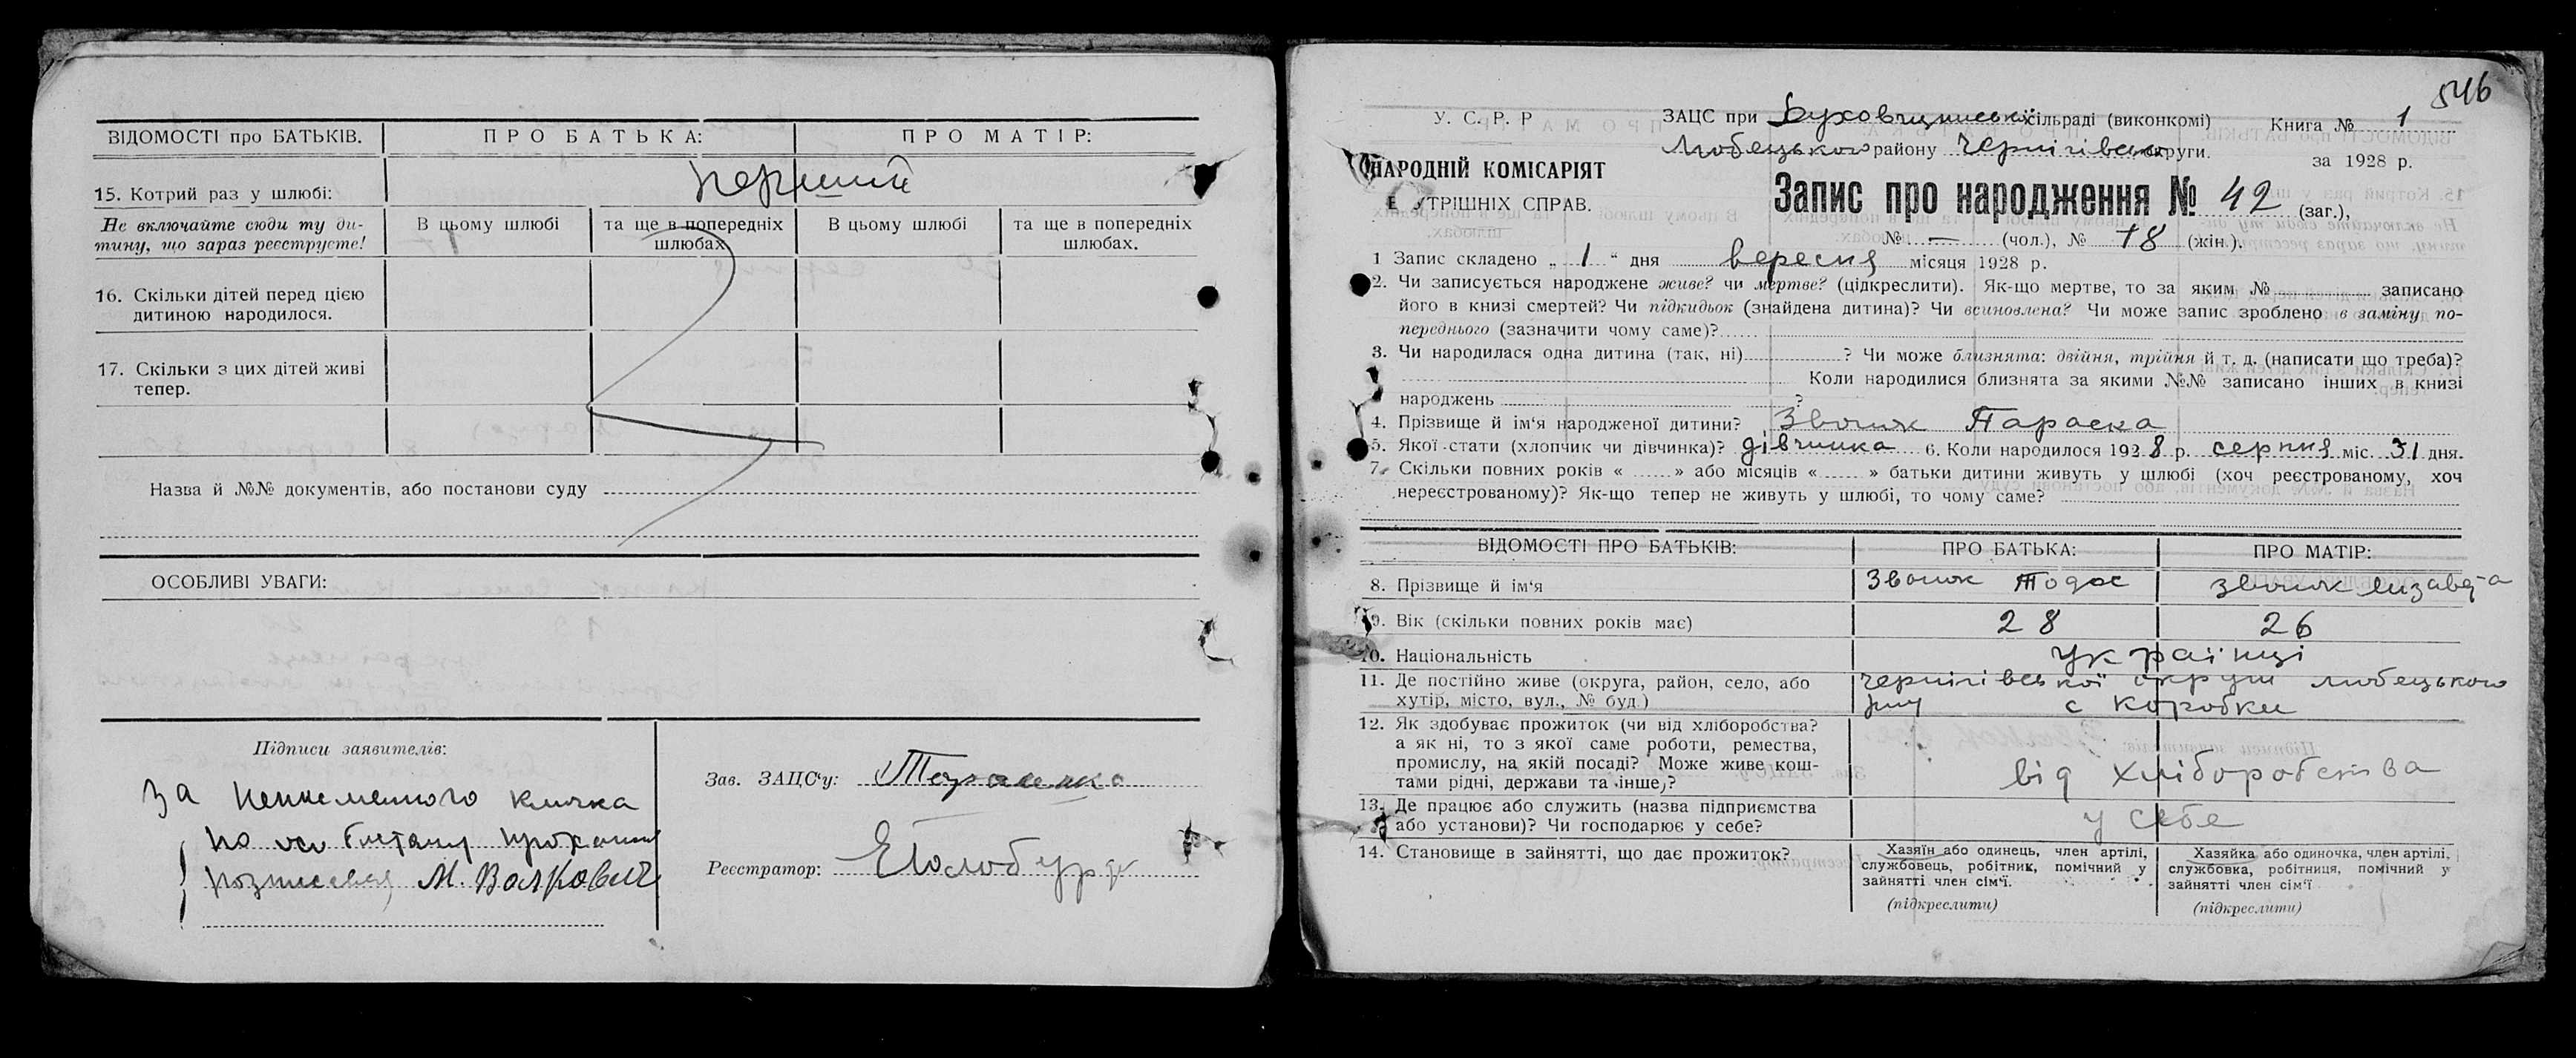 ВІДОМОСТІ про БАТЬКІВ.
ПРО БАТЬКА:
ПРО МАТІР:
15. Котрий раз у шлюбі:
перший
Не включайте сюди ту ди-
тину, що зараз реєструєте!
В цьому шлюбі
та ще в попередніх
шлюбах
В цьому шлюбі
та ще в попередніх
шлюбах.
16. Скільки дітей перед цією
дитиною народилося.
17. Скільки з цих дітей живі
тепер.
Назва й №№ документів, або постанови суду
ОСОБЛИВІ УВАГИ:
Підписи заявителів:
За неписьменного
по особистому
М. Волкович
Зав. ЗАЦС‘у:
Реєстратор:
546
У. С. Р. Р
ЗАЦС при сільраді (виконкомі)
Книга № 1
Любецького району Чернігівсько округи.
за 1928 р.
НАРОДНІЙ КОМІСАРІЯТ
УТРІШНІХ СПРАВ.
Запис про народження № 42 (заг.),
№ — (чол.), № 18 (жін.).
1 Запис складено „ 1 “ дня вересня місяця 1928 р.
2. Чи записується народжене живе? чи мертве? (цідкреслити). Як-що мертве, то за яким № записано
його в книзі смертей? Чи підкидьок (знайдена дитина)? Чи всиновлена? Чи може запис зроблено в заміну по-
переднього (зазначити чому саме)?
3. Чи народилася одна дитина (так, ні) ? Чи може близнята: двійня, трійня й т. д. (написати що треба)?
Коли народилися близнята за якими №№ записано інших в книзі
народжень ?
4. Прізвище й ім‘я народженої дитини? Звонж Параска
5. Якої стати (хлопчик чи дівчинка)? дівчинка 6. Коли народилося 1928 р. серпня міс. 31 дня.
7. Скільки повних років « » або місяців « » батьки дитини живуть у шлюбі (хоч реєстрованому, хоч
нереєстрованому)? Як-що тепер не живуть у шлюбі, то чому саме?
ВІДОМОСТІ ПРО БАТЬКІВ:
ПРО БАТЬКА:
ПРО МАТІР:
8. Прізвище й ім‘я
Звонж Тодос
Звонж Лизавета
9. Вік (скільки повних років має)
28
26
10. Національність
українці
11. Де постійно живе (округа, район, село, або
хутір, місто, вул., № буд.)
Чернігівської округи Любецького
с Коробки
12. Як здобуває прожиток (чи від хліборобства?
а як ні, то з якої саме роботи, ремества,
промислу, на якій посаді? Може живе кош-
тами рідні, держави та інше,?
від хліборобства
13. Де працює або служить (назва підприємства
або установи)? Чи господарює у себе?
у себе
14. Становище в зайнятті, що дає прожиток?
Хазяїн або одинець, член артілі,
службовець, робітник, помічний у
зайнятті член сім‘ї.
(підкреслити)
Хазяйка або одиночка, член артілі,
службовка, робітниця, помічний у
зайнятті член сім‘ї
(підкреслити)